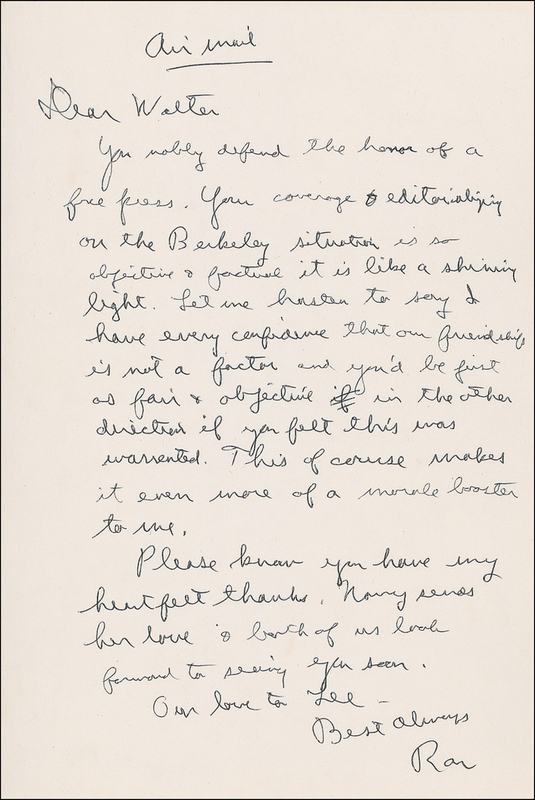 Air mail
Dear Walter
You nobly defend the honor of a
free press. Your coverage & editorializing
on the Berkeley situation is so
objective & factual it is like a shining
light. Let me hasten to say I
have every confidence that our friendship
is not a factor and you'd be just
as fair & objective if in the other
direction if you felt this was
warrented. This of coruse makes
it even more of a morale booster
to me.
Please know you have my
heartfelt thanks. Nancy sends
her love & both of us look
forward to seeing you soon.
Our love to Lee –
Best Always
Ron